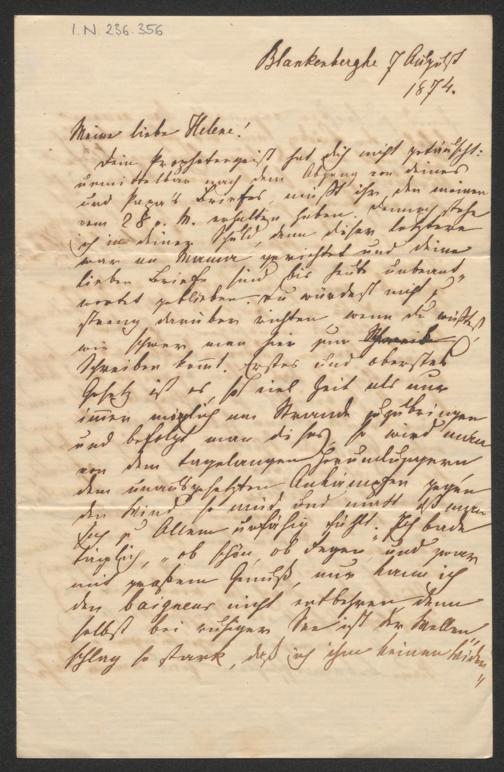 I.N. 236.356
Blankenberghe 7 August
1874.
Meine liebe Helene!
Dein Prophetengeist hat dich nicht getäuscht:
unmittelbar nach dem Abgang von deines
und Papa's Briefes, müßt ihr den meinen
vom 28 p. M. erhalten haben. Dennoch stehe
ich in deiner Schuld, denn dieser letztere
war an Mama gerichtet und deine
lieben Briefe sind bis heute unbeant„
wortet geblieben. Du würdest nicht so
streng darüber richten wenn du wüßtest
wie schwer man hier zum
Schreiben kommt. Erstes und oberstes
Gesetz ist es, so viel Zeit als nur
immer möglich am Strande zuzubringen
und befolgt man dieses, so wird man
von dem tagelangen Herumlungern
dem unausgesetzten Ankämpfen gegen
den Wind so müd und matt daß man
sich zu Allem unfähig fühlt. Ich bade
täglich, „ob schön, ob Regen" und zwar
mit großem Genuß, nur kann ich
den baigneur nicht entbehren denn
selbst bei ruhiger See ist der Wellen„
schlag so stark, daß ich ihm keinen Wider„